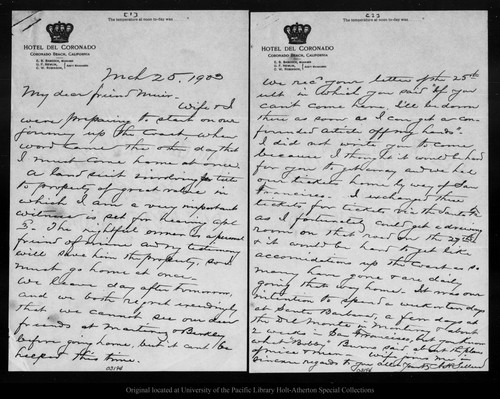 [1]
The temperature at noon to-day was
HOTEL DEL CORONADO
CORONADO BEACH, CALIFORNIA
Mch 25, 1903
My dear friend Muir.
Wife & I
were preparing to start on our
journey up the Coast, when
word came the other day that
I must come home at once.
A land suit involving title
to property of great value in
which I am a very important
witness is set for hearing Apl
5. The rightful owner is a personal
friend of mine and my testimony
will save him the property, so I
must go home at once.
We leave day after tomorrow,
and we both regret exceedingly
that we cannot see our dear
friends at Martinez & Berkeley
before going home, but it can't be
helped this time.
03196
[2]
The temperature at noon to-day was
HOTEL DEL CORONADO
CORONADO BEACH, CALIFORNIA
We rec'd your letter of the 25th
ult in which you said "If you
can't come here, I'll be down
there as soon as I can get a con
founded article off my hands".
I did not write you to come
because I thought it would be hard
for you to get away and we had
our tickets home by way of San
Francisco. I exchanged these
tickets for tickets via the Santa Fe
as I fortunately could get a drawing
room on that road on the 27th
& it would be hard to get like
accomodations up the Coast as so
many have gone & are daily
going that way home. It was our
intention to spend a week or ten days
at Santa Barbara, a few days at
the Del Monte in Monterey & about
2 weeks in San Francisco, but you know
what "Bobby" Burns said about the plans
of mice & men. Wife joins me in
sincere regards to you all.
03196
Original located at University of the Pacific Library Holt-Atherton Special Collections